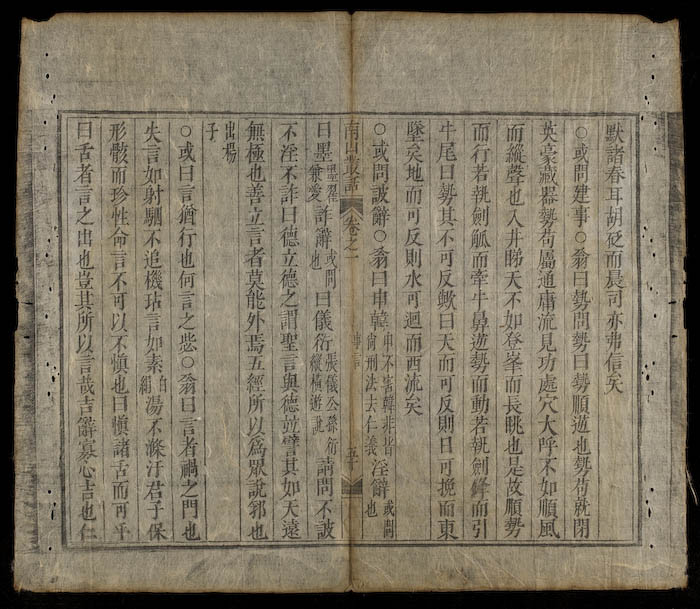 默諸春耳胡貶而晨司亦弗信矣
○或問建事○翁曰勢問勢曰勢順逆也勢苟就閉
英豪藏器勢苟屬通庸流見功處穴大呼不如順風
而縱聲也入井睇天不如登峯而長眺也是故順勢
而行若執劍觚而牽牛鼻逆勢而動若執劍鋒而引
牛尾曰勢其不可反歟曰天而可反則日可挽而東
墜矣地而可反則水可迴而西流矣
○或問詖辭○翁曰申韓申不害韓非皆尙刑法去仁義淫辭或問也
卷之一
五十
曰墨墨翟兼愛詐辭或問也曰儀衍張儀公孫衍縱橫遊說請問不詖
不淫不詐曰德立德之謂聖言與德並譬其如天遠
無極也善立言者莫能外焉五經所以爲眾說郛也
出楊子
○或曰言猶行也何言之愆○翁曰言者禍之門也
失言如射駟不追機玷言如素白絹湯不滌汙君子保
形骸而珍性命言不可以不愼也曰愼諸舌而可乎
曰舌者言之出也豈其所以言哉吉辭寡心吉也仁